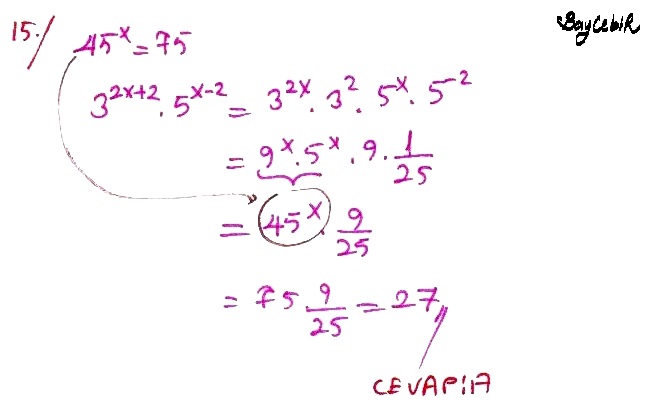 BayCebiR
15./ 45^x = 75
3^{2x+2} . 5^{x-2} = 3^{2x} . 3^2 . 5^x . 5^{-2}
= 9^x . 5^x . 9 . 1/25
= 45^x . 9/25
= 75 . 9/25 = 27
CEVAP:A